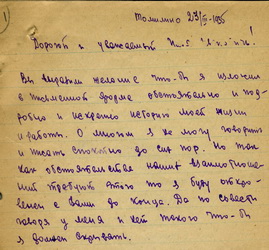 Дорогой и уважаемый
Вы выразили желание что-бы я изложил
в письменной форме обстоятельно и под-
робно и искренно историю моей жизни
и работы. О многом я не могу говорить
и писать спокойно до сих пор. Но так
как обстоятельства наших взаимоотноше-
ний требуют этого то я буду откро-
венен с Вами до конца. Да по совести
говоря у меня и нет такого что-бы
я должен скрывать.